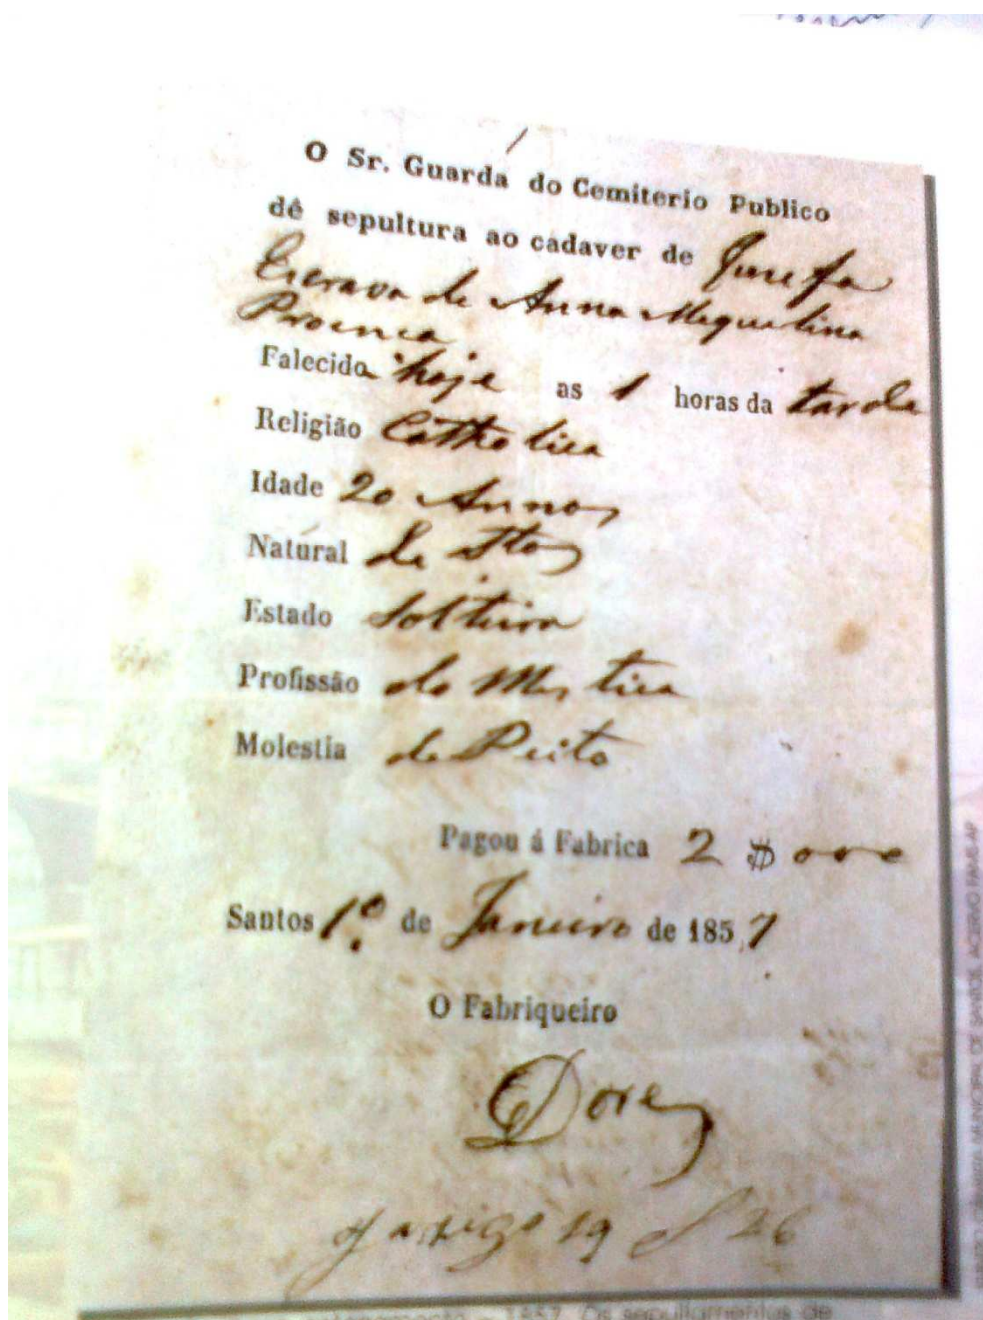 O Sr. Guarda do Cemiterio Publico
dê sepultura ao cadaver de Jusefa
Escrava de Anna Mequelina
Proença
Falecida hoje as 1 horas da tarde
Religião Catholica
Idade 20 Annos
Natural de Stos
Estado Solteira
Profissão do Mestica
Molestia de Peito
Pagou á Fabrica 2$000
Santos 1º de Janeiro de 1857
O Fabriqueiro
Jasigo 19 S 26
ACERVO FAMS-AP
1857. Os sepultamentos de